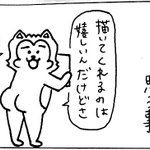 描いてくれるのは
嬉しいんだけどさ